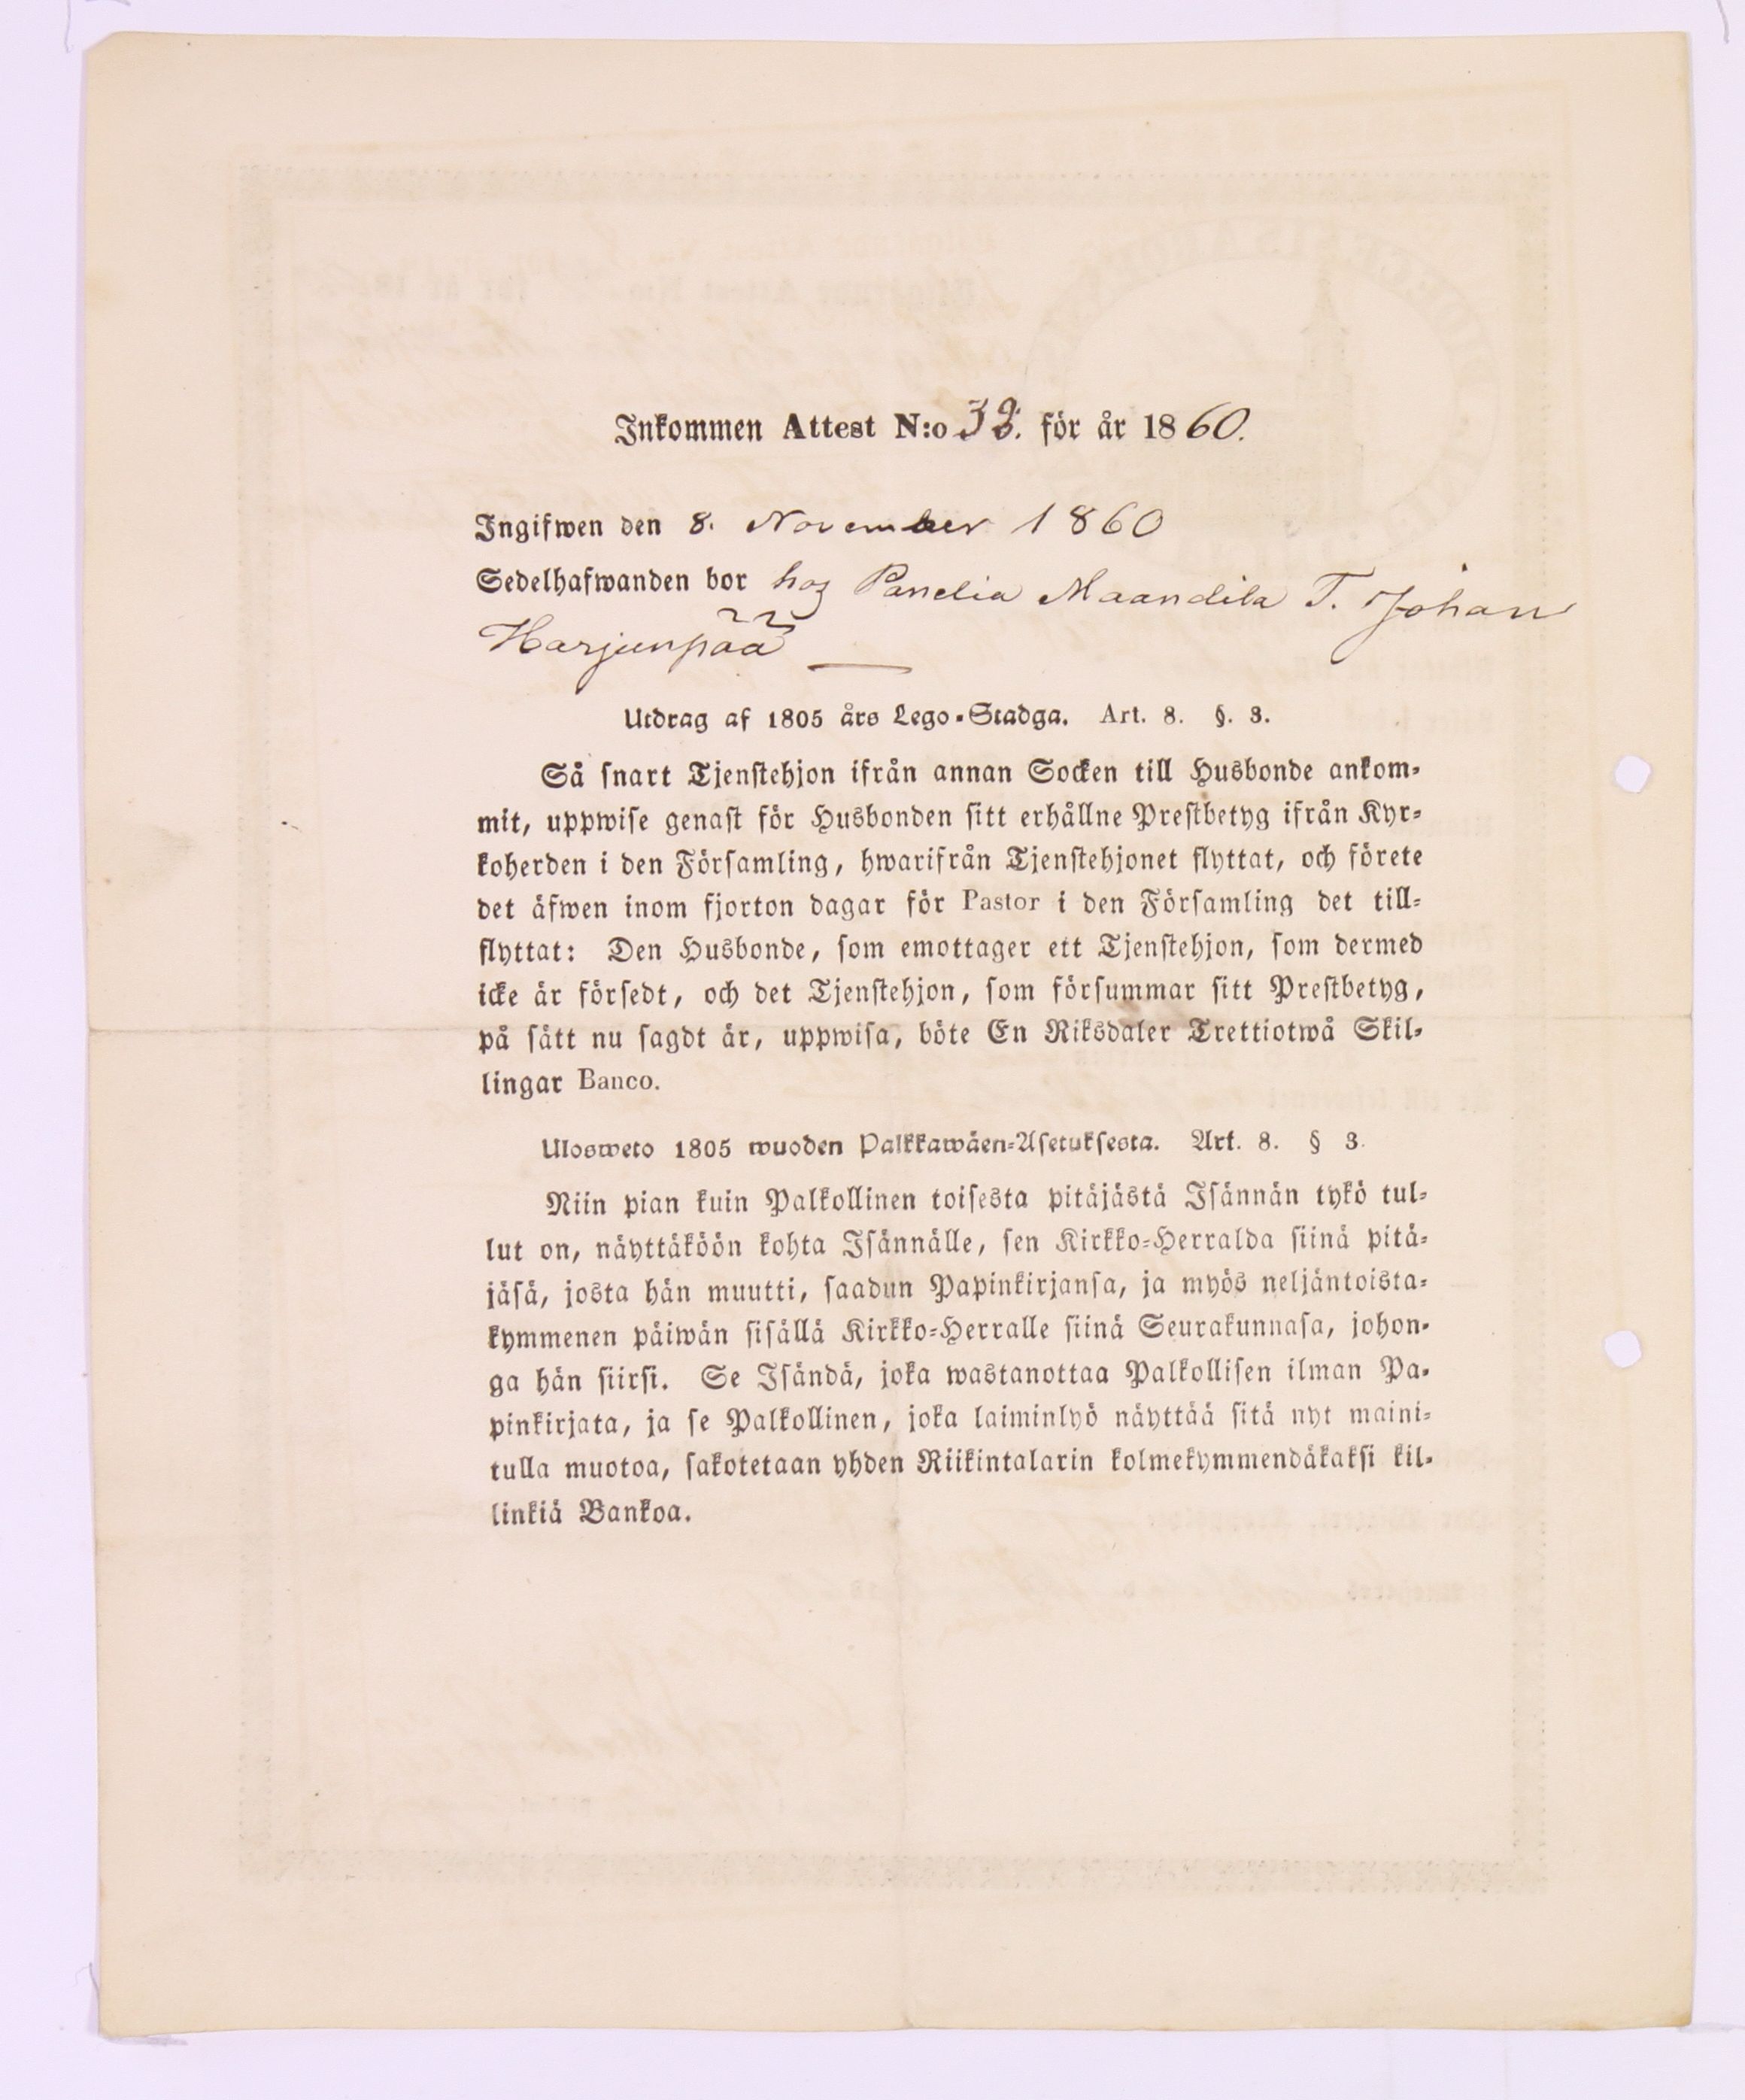 Inkommen Attest N:o 38. för år 1860.
Ingifwen den 8. November 1860
Sedelhafwanden bor hos Panelia Maandila T. Johan
Harjunpää
Utdrag af 1805 års Lego-Stadga. Art. 8. §. 3.
Så snart Tjenstehjon ifrån annan Socken till Husbonde ankom-
mit, uppwise genast för Husbonden sitt erhållne Prestbetyg ifrån Kyr-
koherden i den Församling, hwarifrån Tjenstehjonet flyttat, och förete
det äfwen inom fjorton dagar för Pastor i den Församling det till-
flyttat: Den Husbonde, som emottager ett Tjenstehjon, som dermed
icke är försedt, och det Tjenstehjon, som försummar sitt Prestbetyg,
på sätt nu sagdt är, uppwisa, böte En Riksdaler Trettiotwå Skil-
lingar Banco.
Ulosweto 1805 wuoden Palkkawäen-Asetuksesta. Art. 8. § 3.
Niin pian kuin Palkollinen toisesta pitäjästä Isännän tykö tul-
lut on, näyttäköön kohta Isännälle, sen Kirkko-Herralda siinä pitä-
jäsä, josta hän muutti, saadun Papinkirjansa, ja myös neljäntoista-
kymmenen päiwän sisällä Kirkko-Herralle siinä Seurakunnasa, johon-
ga hän siirsi. Se Isändä, joka wastanottaa Palkollisen ilman Pa-
pinkirjata, ja se Palkollinen, joka laiminlyö näyttää sitä nyt maini-
tulla muotoa, sakotetaan yhden Riikintalarin kolmekymmendäkaksi kil-
linkiä Bankoa.